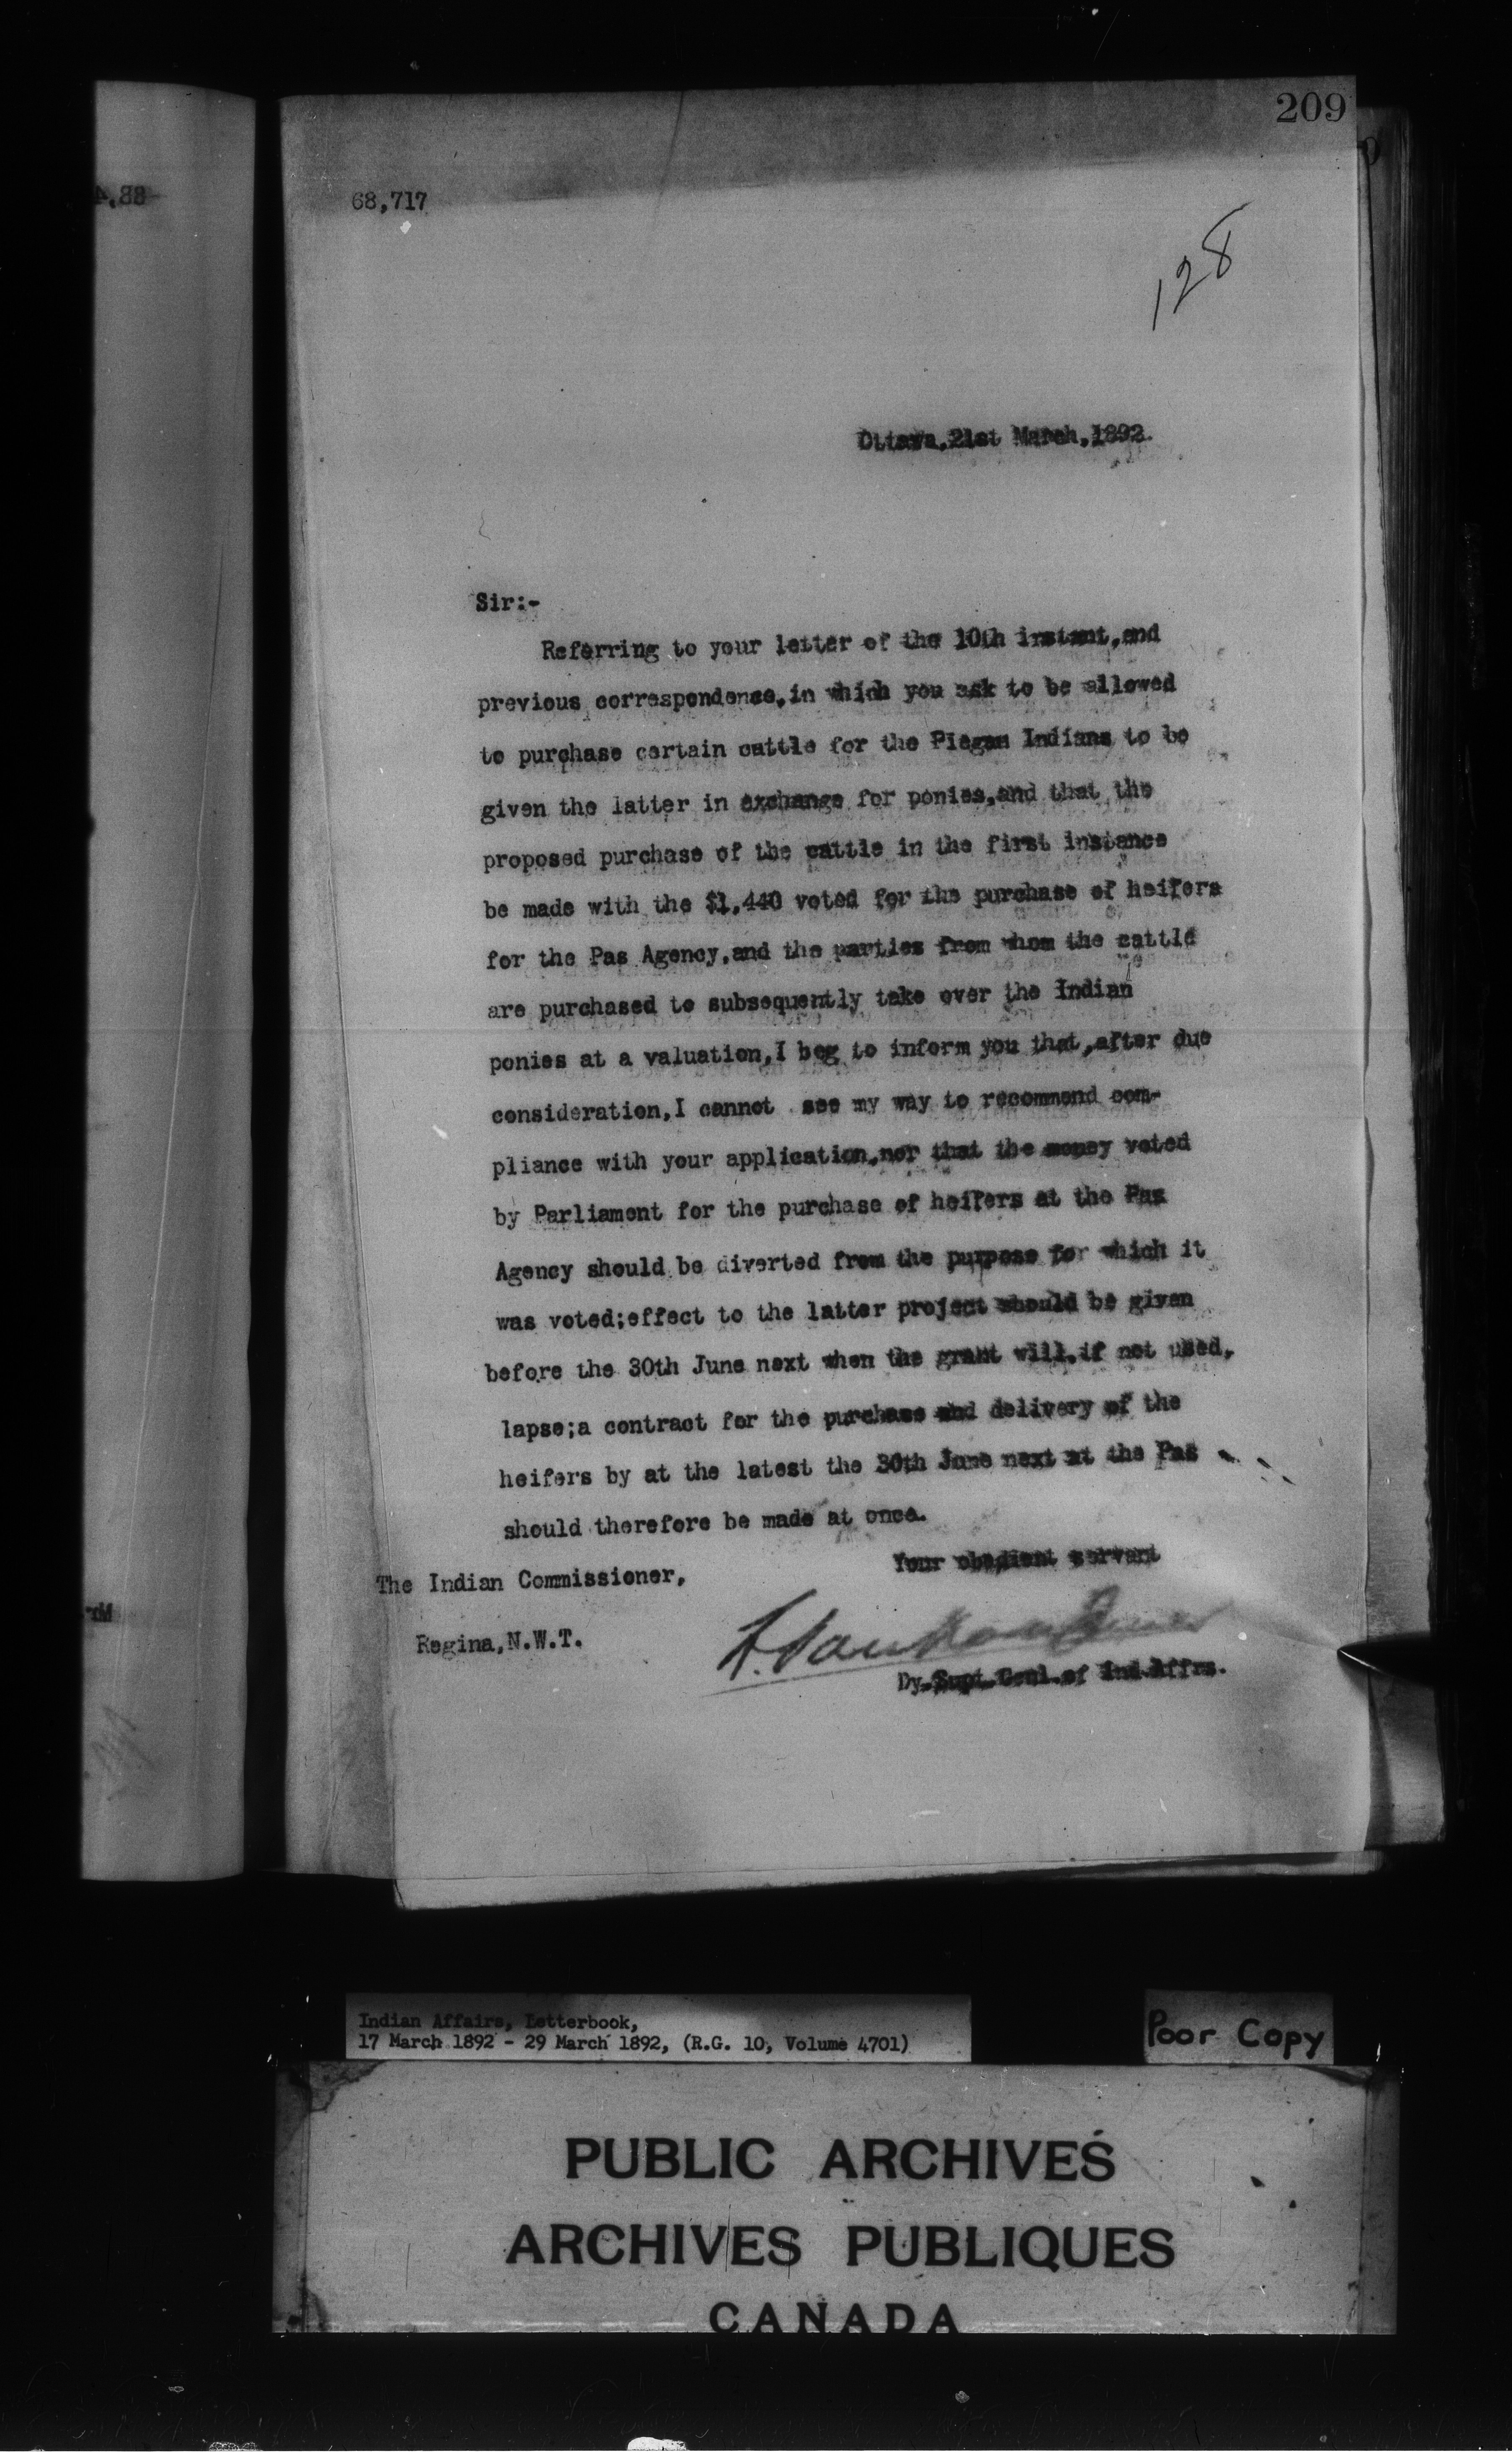 209
68,717
128
Ottawa,21st March,1892.
Sir:-
Referring to your letter of the 10th instant,and
previous correspondence,in which you ask to be allowed
to purchase certain cattle for the Piegan Indians to be
given the latter in exchange for ponies,and that the
proposed purchase of the cattle in the first instance
be made with the $1,440 voted for the purchase of heifers
for the Pas Agency,and the parties from whom the cattle
are purchased to subsequently take over the Indian
ponies at a valuation,I beg to inform you that,after due
consideration,I cannot see my way to recommend com-
pliance with your application,nor that the money voted
by Parliament for the purchase of heifers at the Pas
Agency should be diverted from the purpose for which it
was voted;effect to the latter project should be given
before the 30th June next when the grant will,if not used,
lapse;a contract for the purchase and delivery of the
heifers by at the latest the 30th June next at the Pas
should therefore be made at once.
Your obedient servant
The Indian Commissioner,
Regina,N.W.T.
L. Vankoughnet
Dy.Supt.Genl.of Ind.Affrs.
Indian Affairs, Letterbook,
17 March 1892 - 29 March 1892, (R.G. 10, Volume 4701)
Poor Copy
PUBLIC ARCHIVES
ARCHIVES PUBLIQUES
CANADA